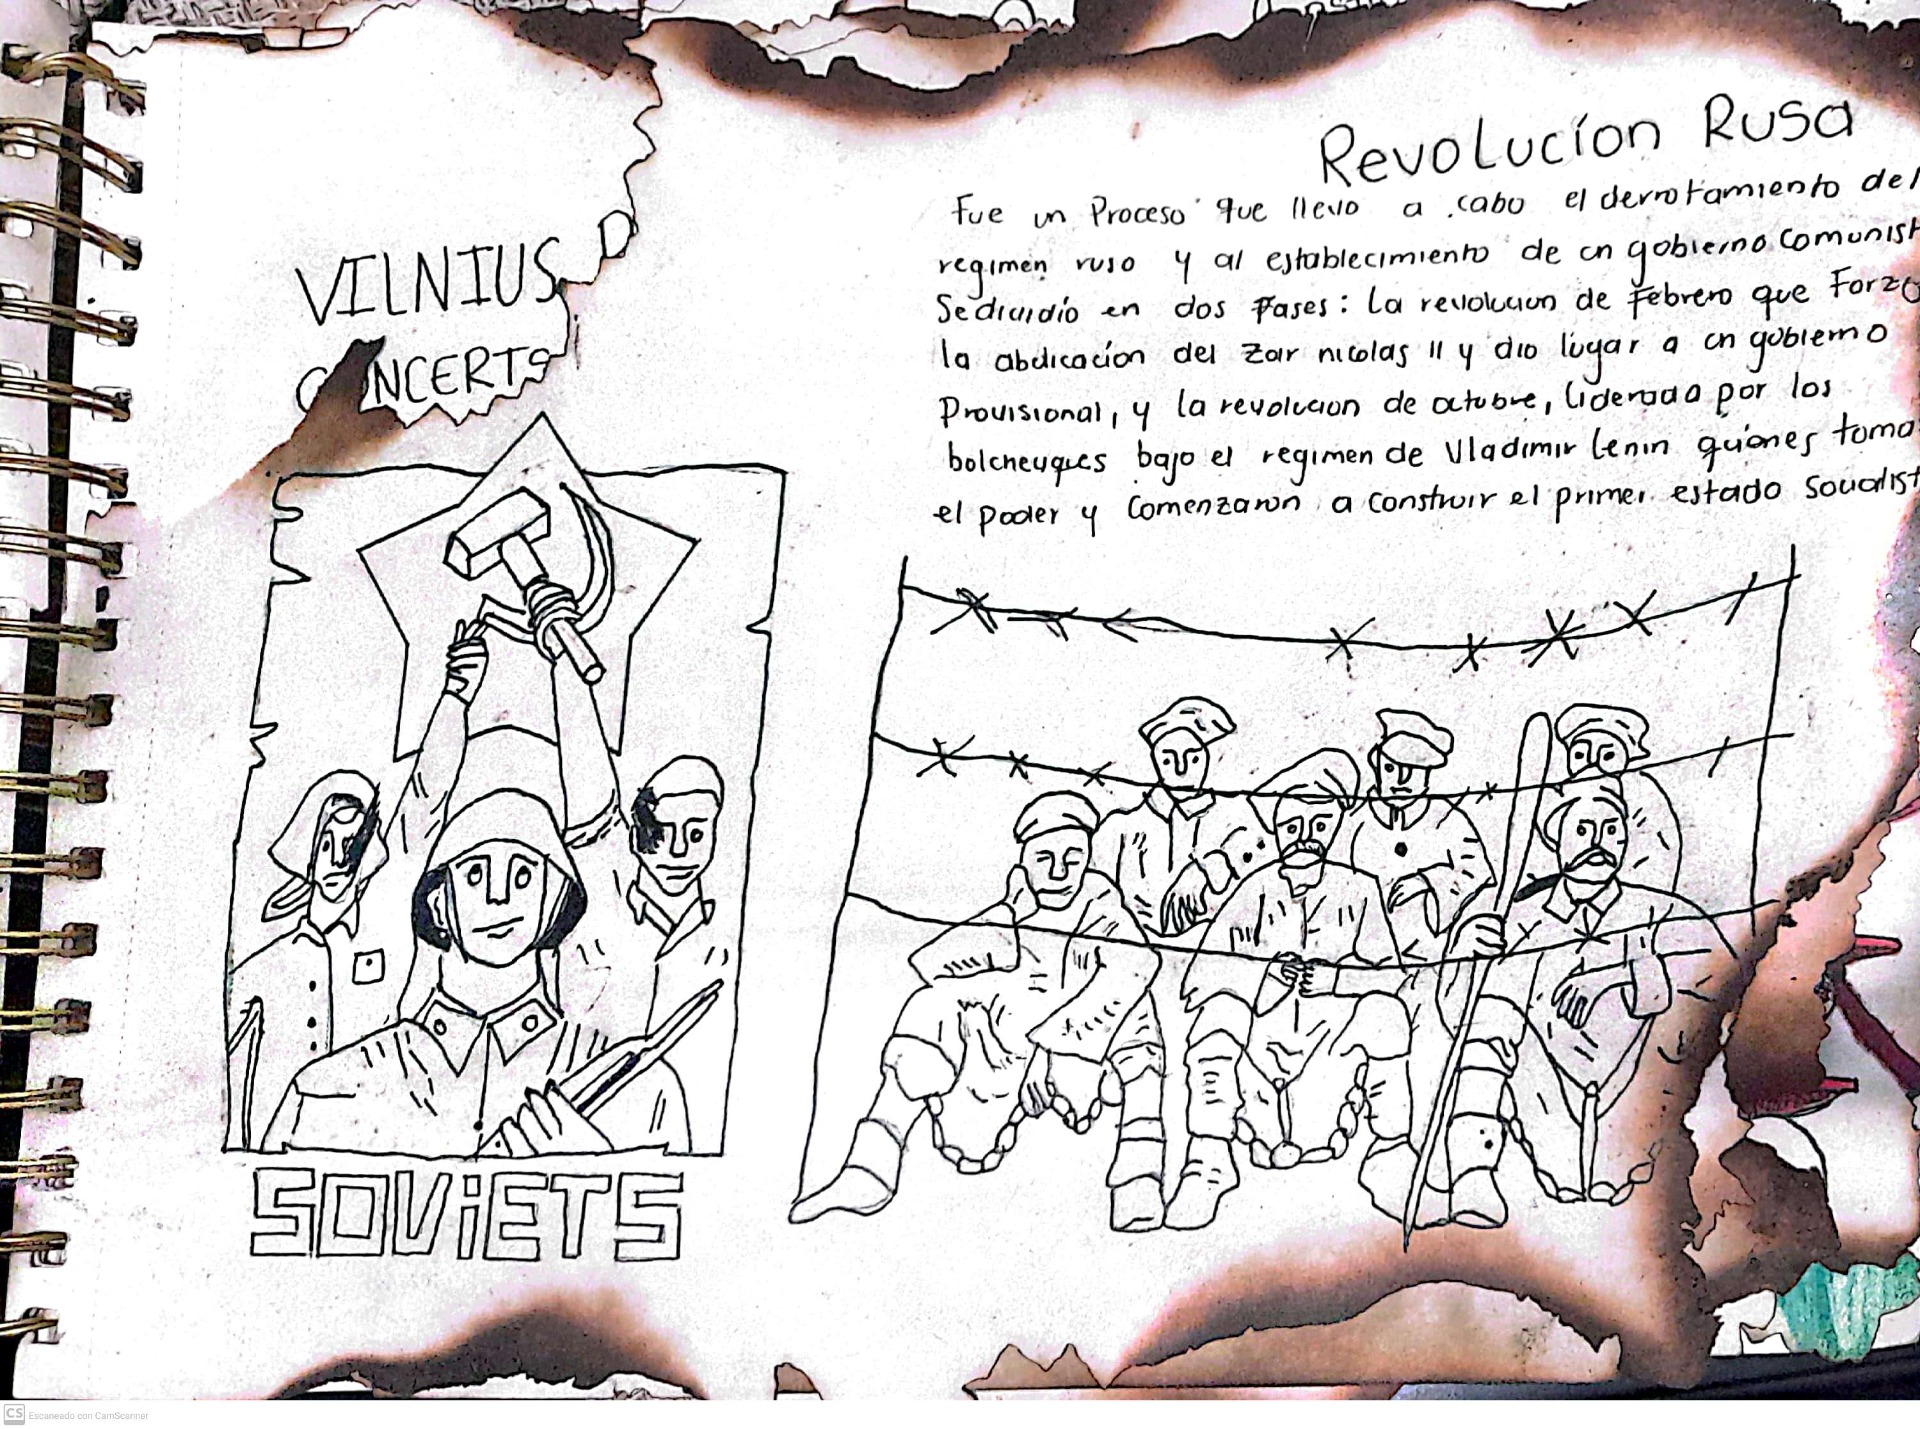 VILNIUS D
CONCERTS
SOViETS
Revolucíon Rusa
Fue un Proceso que llevo a cabo el derrotamiento del
regimen ruso y al establecimiento de un gobierno comunist
Sedividio en dos fases: La revolucion de Febrero que Forzo
la abdicacíon del Zar nicolas II y dio lugar a un gobierno
Provisional, y la revolucion de octubre, liderada por los
bolcheuques bajo el regimen de Vladimir Lenin quienes toma
el poder y comenzaron a construir el primer estado socialist
CS Escaneado con CamScanner